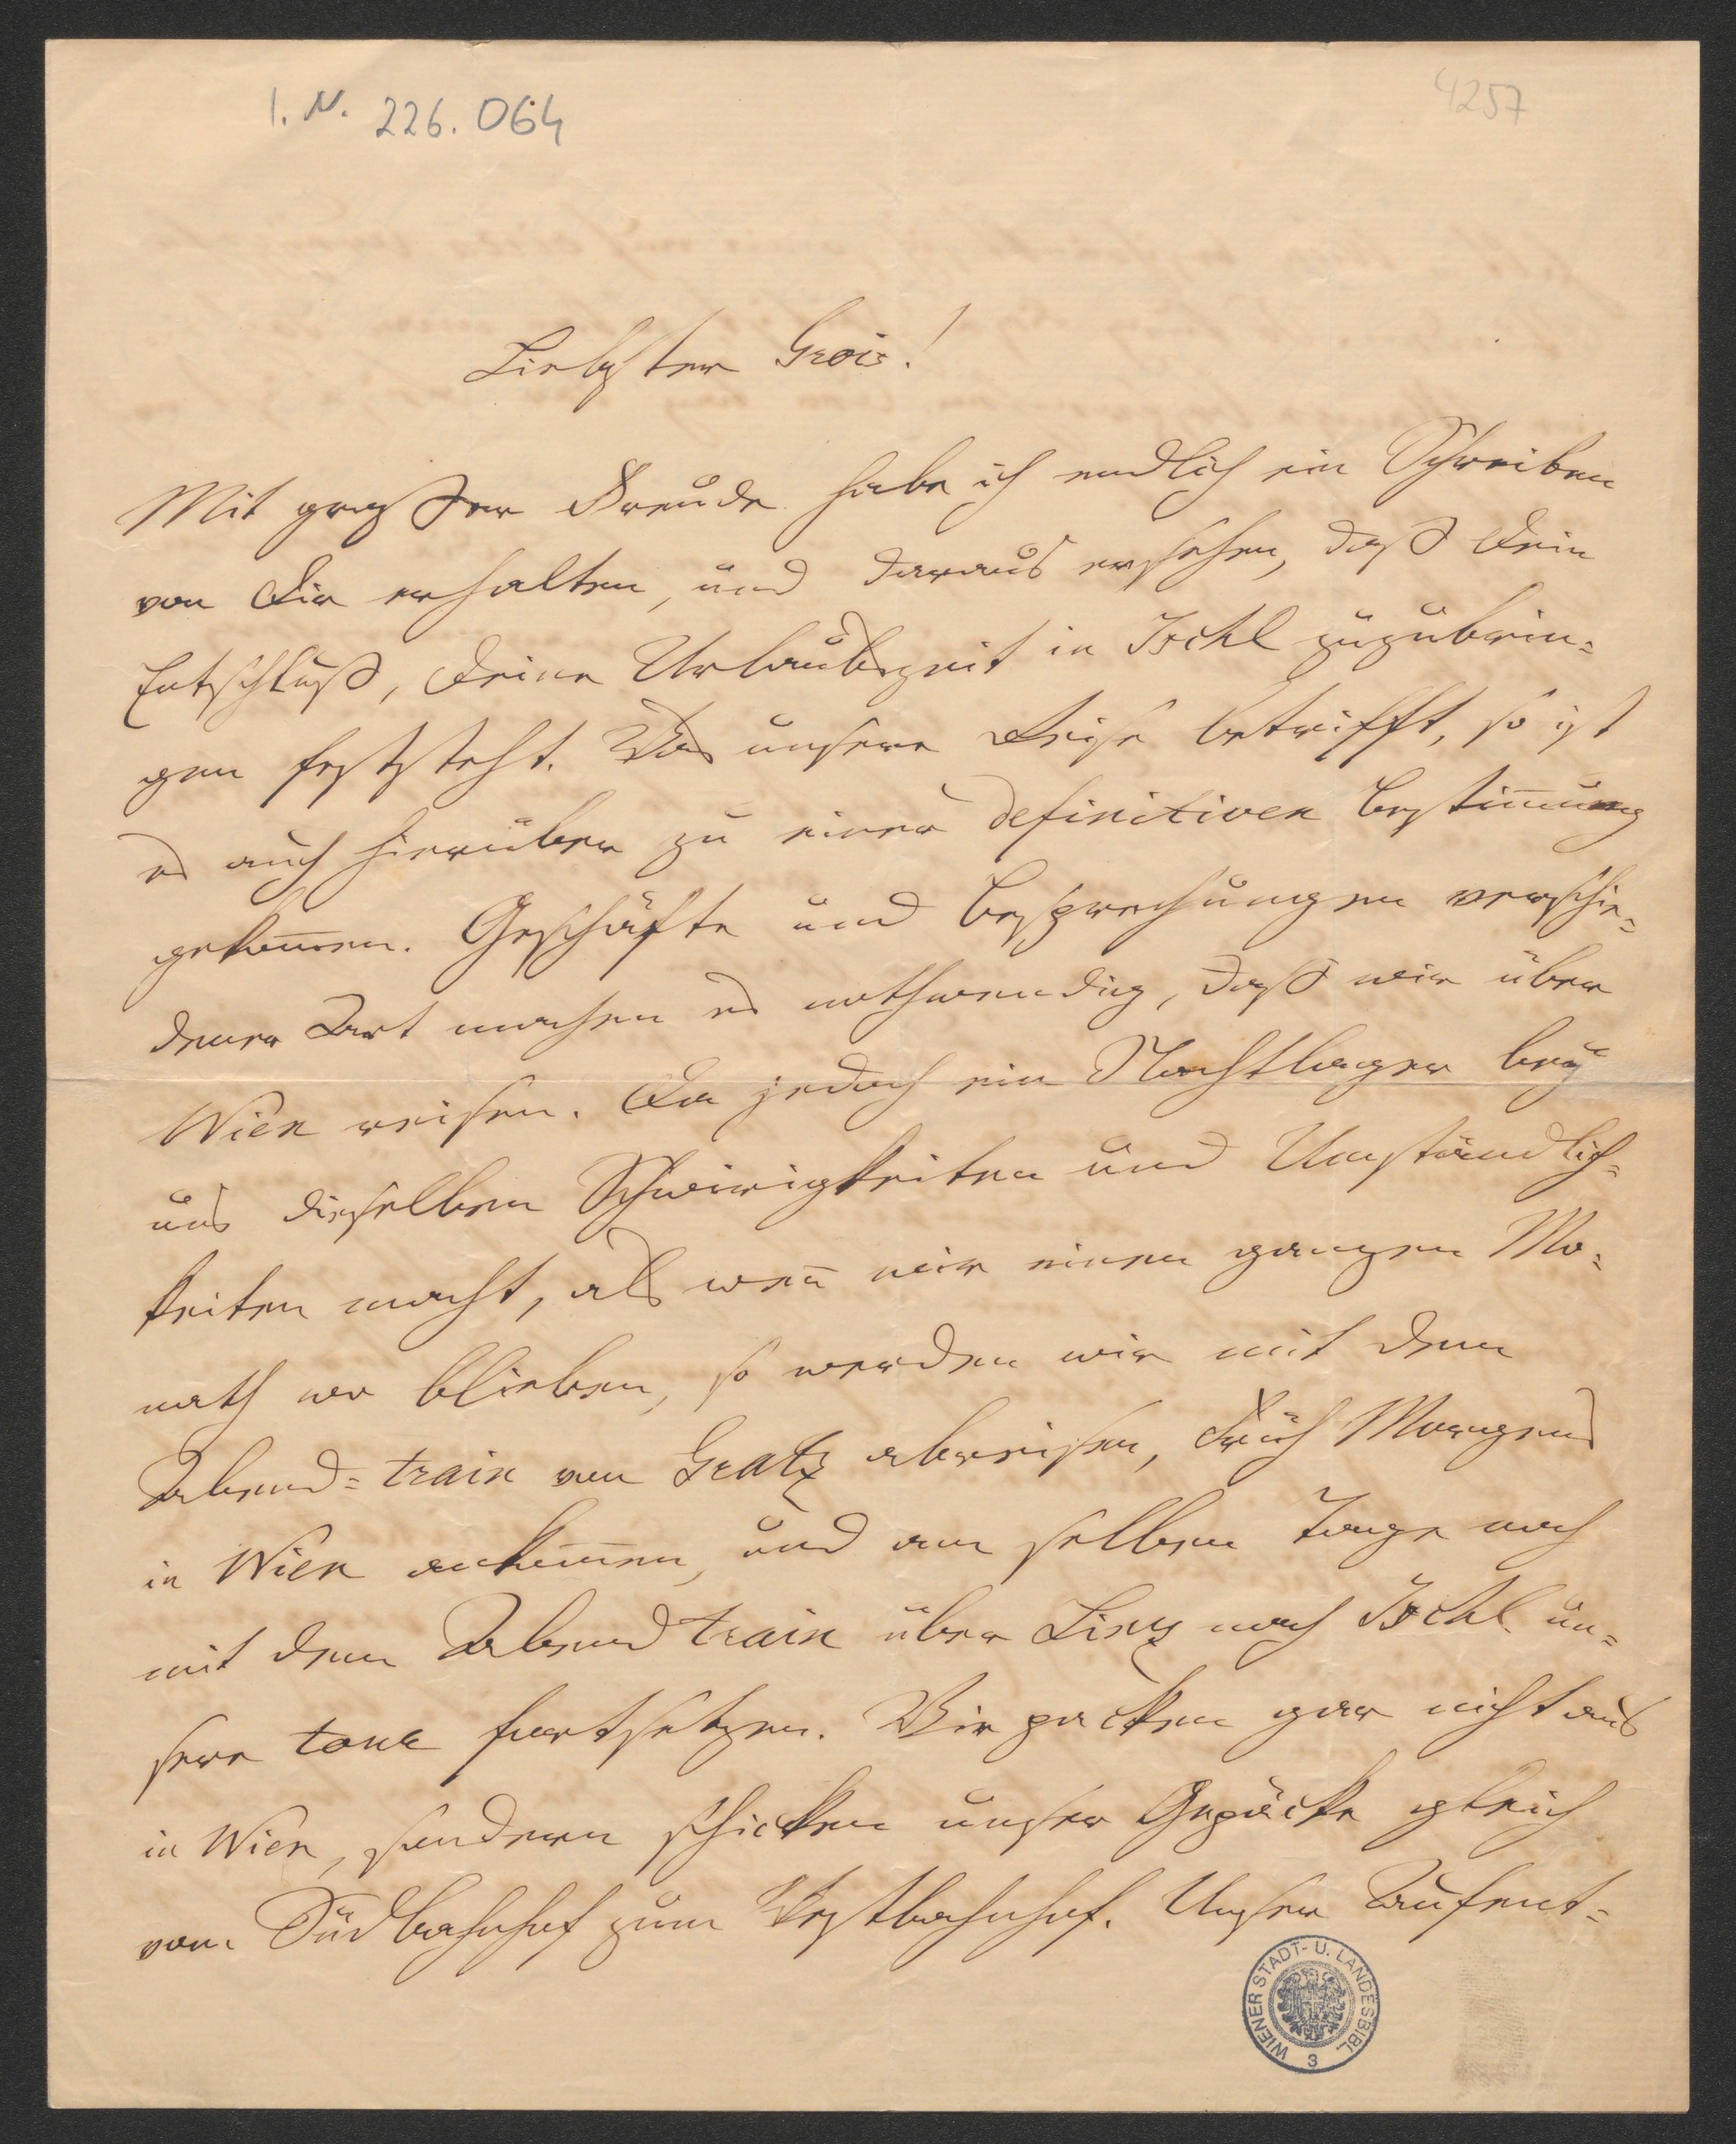 I. N. 226.064
4257
Liebster Grois!
Mit großer Freude habe ich endlich ein Schreiben
von Dir erhalten, und daraus ersehen, daß Dein
Entschluß, Deine Urlaubszeit in Ischl zuzubrin=
gen feststeht. Was unsere Reise betrifft, so ist
es auch hierüber zu einer definitiven Bestim̄ung
gekom̄en. Geschäfte und Besprechungen verschie=
dener Art machen es nothwendig, daß wir über
Wien reisen. Da jedoch ein Nachtlager bey
uns dieselben Schwierigkeiten und Umständlich=
keiten macht, als wen̄ wir einen ganzen Mo=
nath wo blieben, so werden wir mit dem
Abend=train von Gratz abreisen, Früh Morgens
in Wien ankom̄en, und am selben Tage noch
mit dem Abend train über Linz nach Ischl un=
sere tour fortsetzen. Wir packen gar nicht aus
in Wien, sondern schicken unser Gepäcke gleich
vom Südbahnhof zum Westbahnhof. Unser Aufent=
WIENER STADT- U. LANDESBIBL.
3